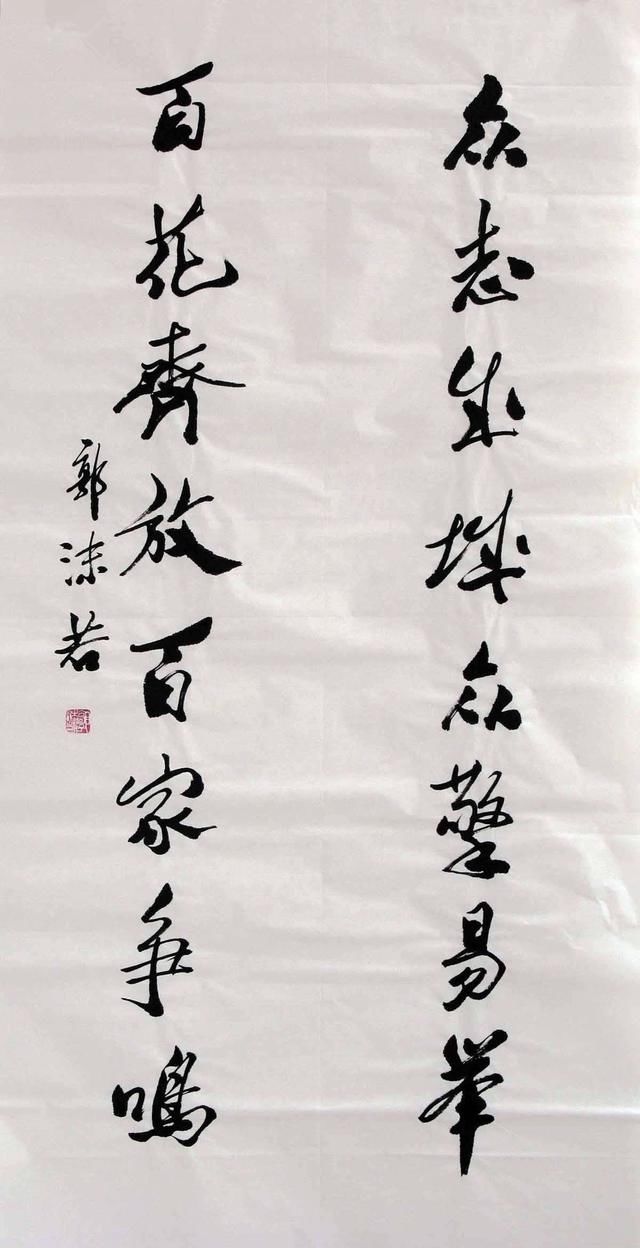 众志成城众擎易举
百花齊放百家争鳴
郭沫若